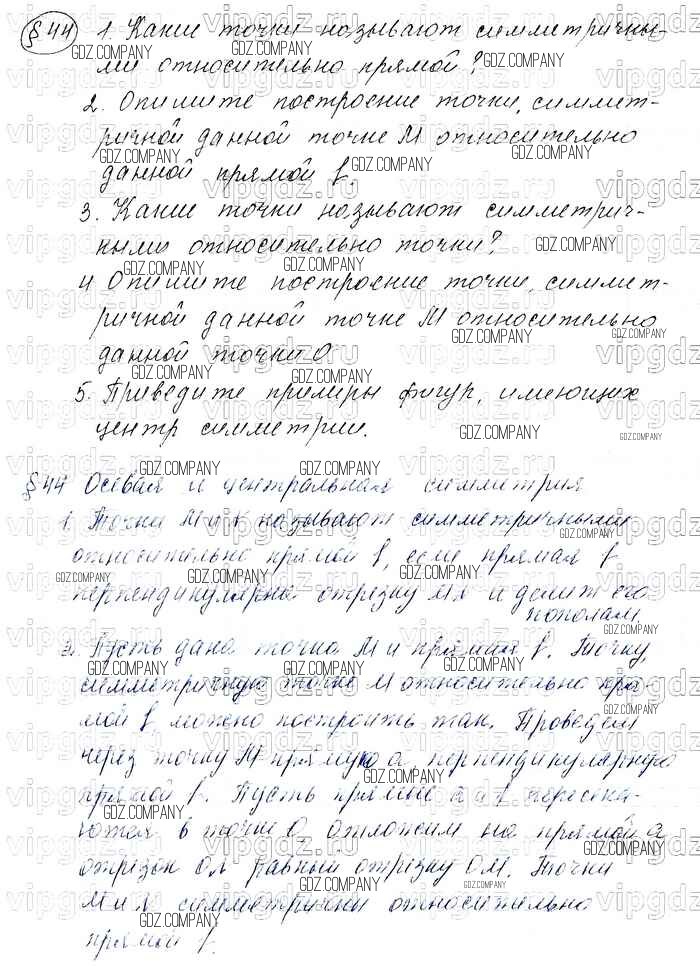 § 44
1. Какие точки называют симметричны-
ми относительно прямой?
2. Опишите построение точки, симмет-
ричной данной точке M относительно
данной прямой l.
3. Какие точки называют симметрич-
ными относительно точки?
4 Опишите построение точки, симмет-
ричной данной точке M относительно
данной точки O.
5. Приведите примеры фигур, имеющих
центр симметрии.
§ 44 Осевая и центральная симметрия
1. Точки M и K называют симметричными
относительно прямой l, если прямая l
перпендикулярна отрезку и делит его
пополам.
2. Пусть дана точка M и прямая l. Точку,
симметричную точке M относительно пря-
мой l можно построить так. Проведем
через точку M прямую a, перпендикулярную
прямой l. Пусть прямые a и l пересека-
ются в точке O. Отложим на прямой a
отрезок равный отрезку OM. Точки
M и симметричны относительно
прямой l.
GDZ.COMPANY
vipgdz.ru